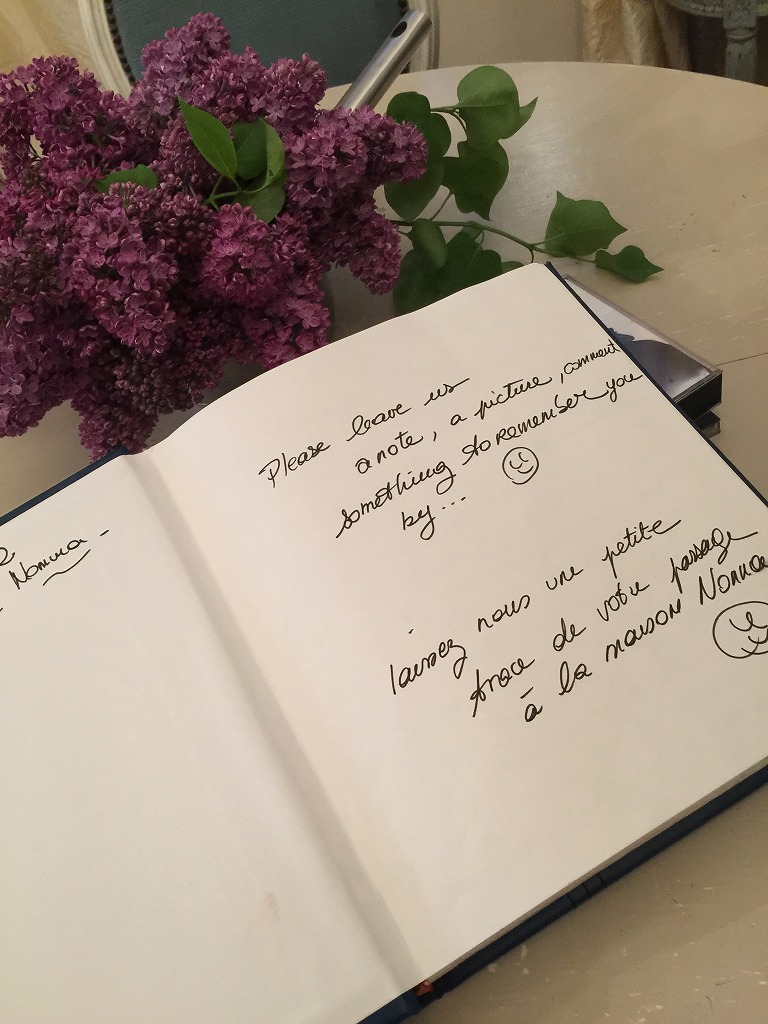 Nonna -
Please leave us
a note, a picture, comment
something to remember you
by...
laissez nous une petite
trace de votre passage
à la maison Nonna